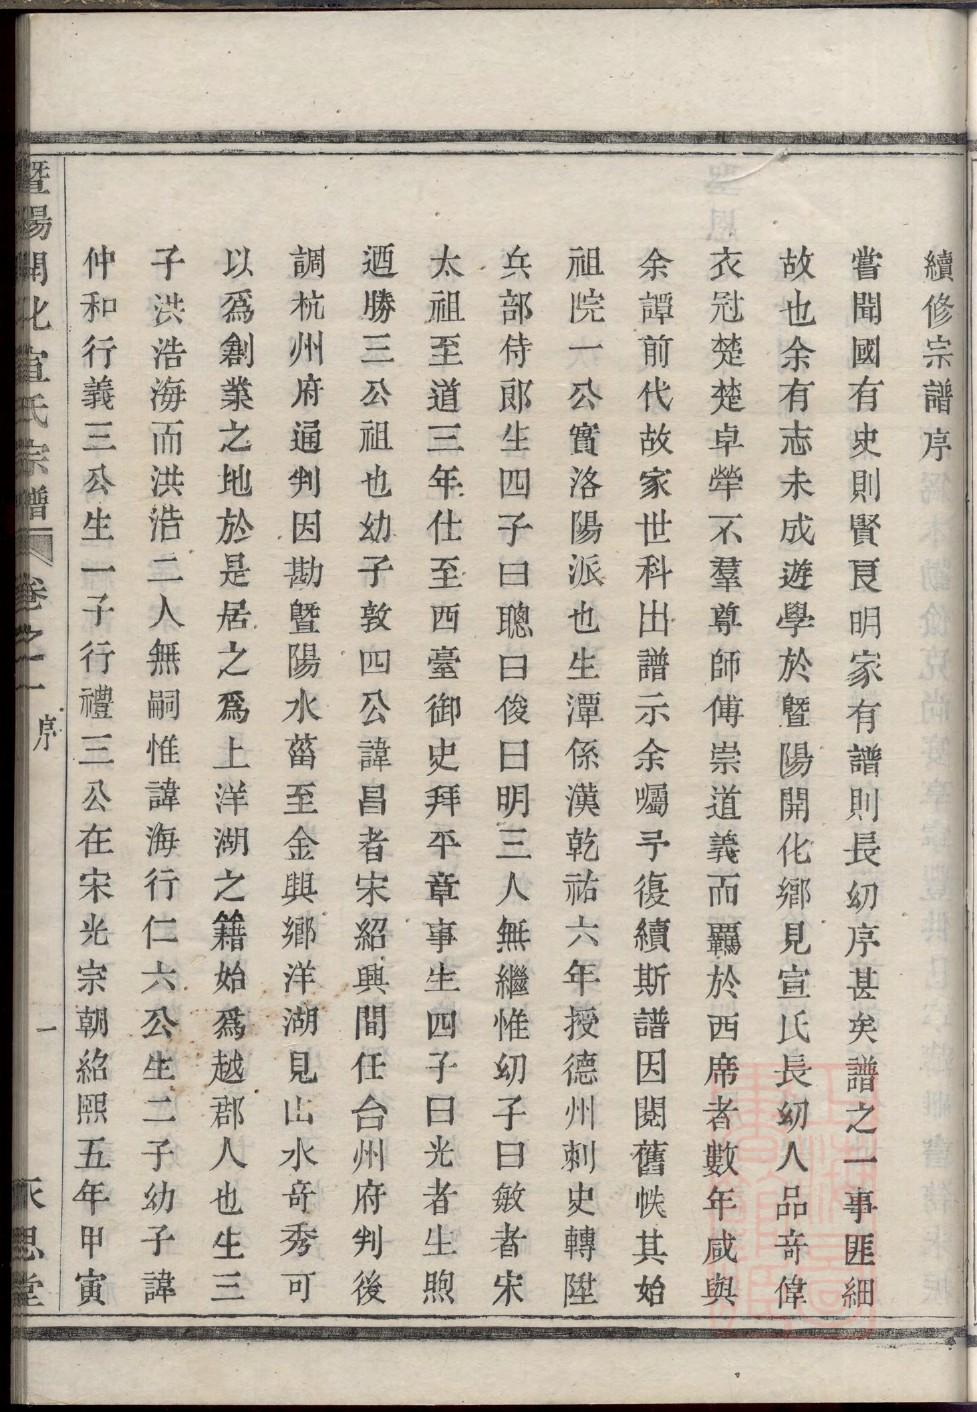 續修宗譜序
嘗聞國有史則賢良明家有譜則長幼序甚矣譜之一事匪細
故也余有志未成遊學於暨陽開化鄉見宣氏長幼人品奇偉
衣冠楚楚卓犖不羣尊師傅崇道義而羈於西席者數年咸與
余譚前代故家世科出譜示余囑予復續斯譜因閱舊帙其始
祖院一公實洛陽派也生潭係漢乾祐六年授德州刺史轉陞
兵部侍郎生四子曰聰曰俊曰明三人無繼惟幼子曰敏者宋
太祖至道三年仕至西臺御史拜平章事生四子曰光者生煦
迺勝三公祖也幼子敦四公諱昌者宋紹興間任台州府判後
調杭州府通判因勘暨陽水菑至金興鄉洋湖見山水奇秀可
以為創業之地於是居之為上洋湖之籍始為越郡人也生三
子洪浩海而洪浩二人無嗣惟諱海行仁六公生二子幼子諱
仲和行義三公生一子行禮三公在宋光宗朝紹熙五年甲寅
暨陽開化宣氏宗譜 卷之一 序 一 思堂